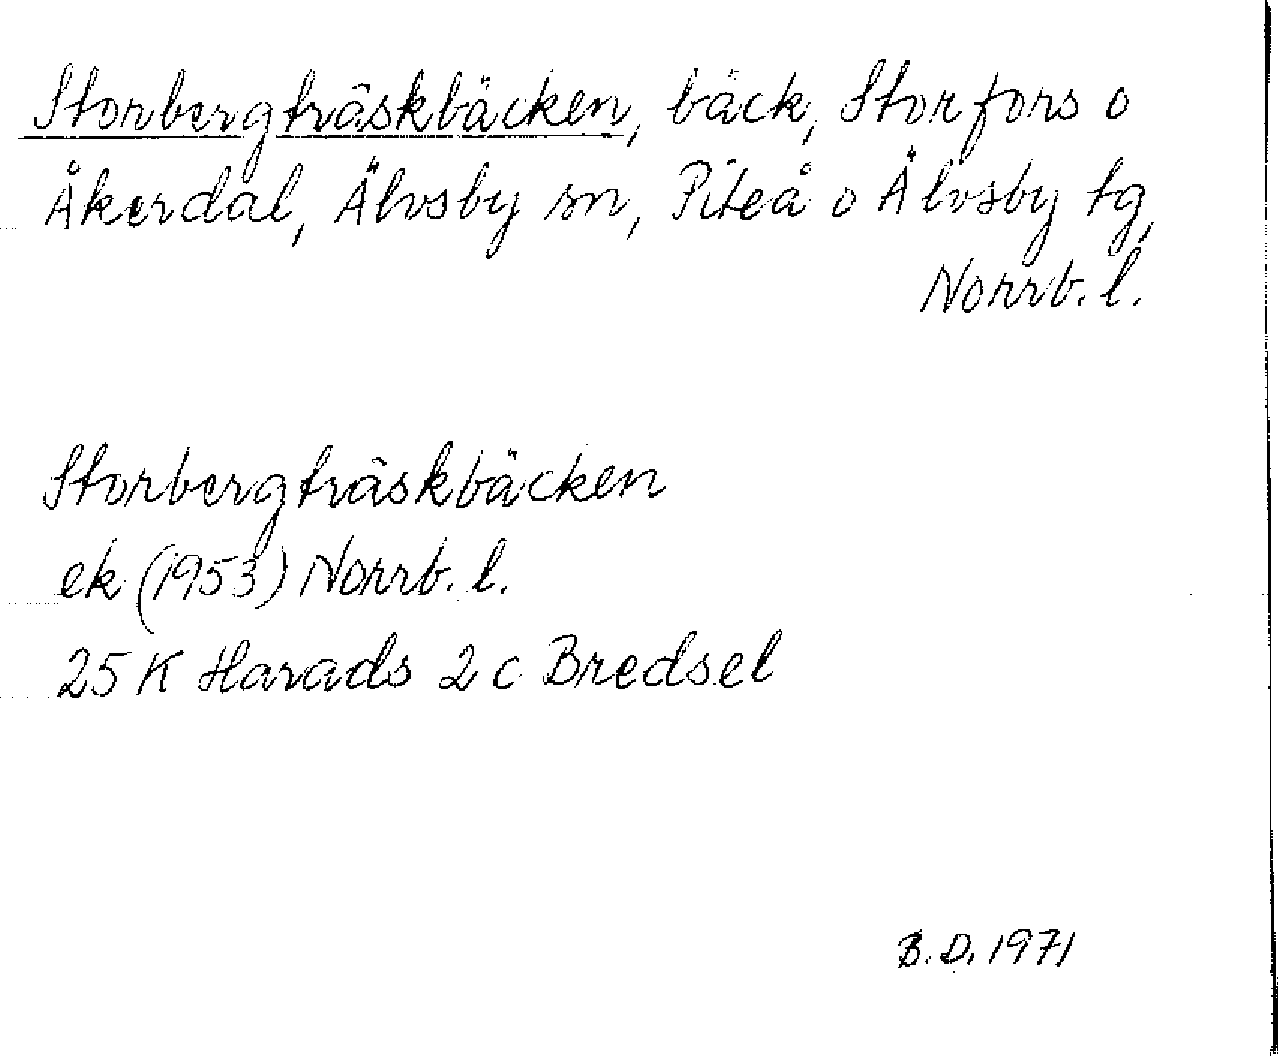 Storbergträskbäcken, bäck, Storfors o
Åkerdal, Älvsby sn, Piteå o Älvsby tg,
Norrb. l.
Storbergträskbäcken
ek (1953) Norrb. l.
25 K Harads 2 c Bredsel
B. D. 1971